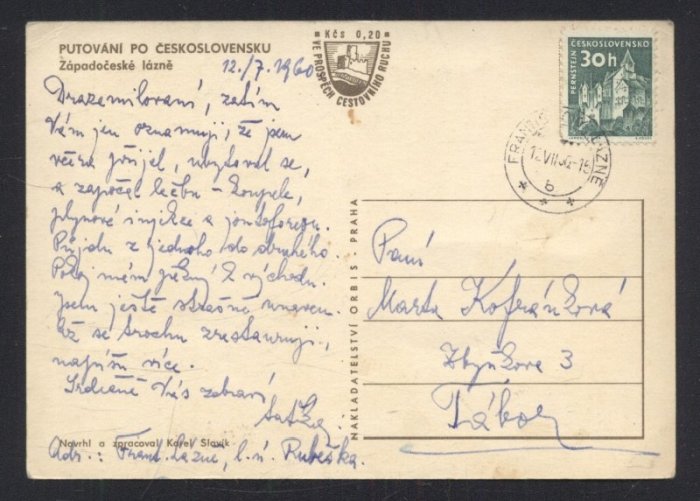 PUTOVÁNÍ PO ČESKOSLOVENSKU
Západočeské lázně
12./7. 1960
Drazemilovaní, zatím
Vám jen oznamuji, že jsem
včera přijel, ubytoval se,
a započal léčbu - koupele,
plynové injekce a jontoforeou.
Půjdu z jednoho do druhého
Pokoj mám pěkný k východu.
Jsem ještě strašně unaven.
Až se trochu zrestauruji,
napíši více.
Srdečně Vás zdraví
Navrhl a zpracoval Karel Slavík
Adr.: Frant. Lázne, l. ú. Rubeška.
Kčs 0,20
VE PROSPĚCH CESTOVNÍHO RUCHU
NAKLADATELSTVÍ ORBIS - PRAHA
ČESKOSLOVENSKO
30h
PERNŠTEJN
Paní
Marta Kofránková
Zbyňkova 3
Tábor